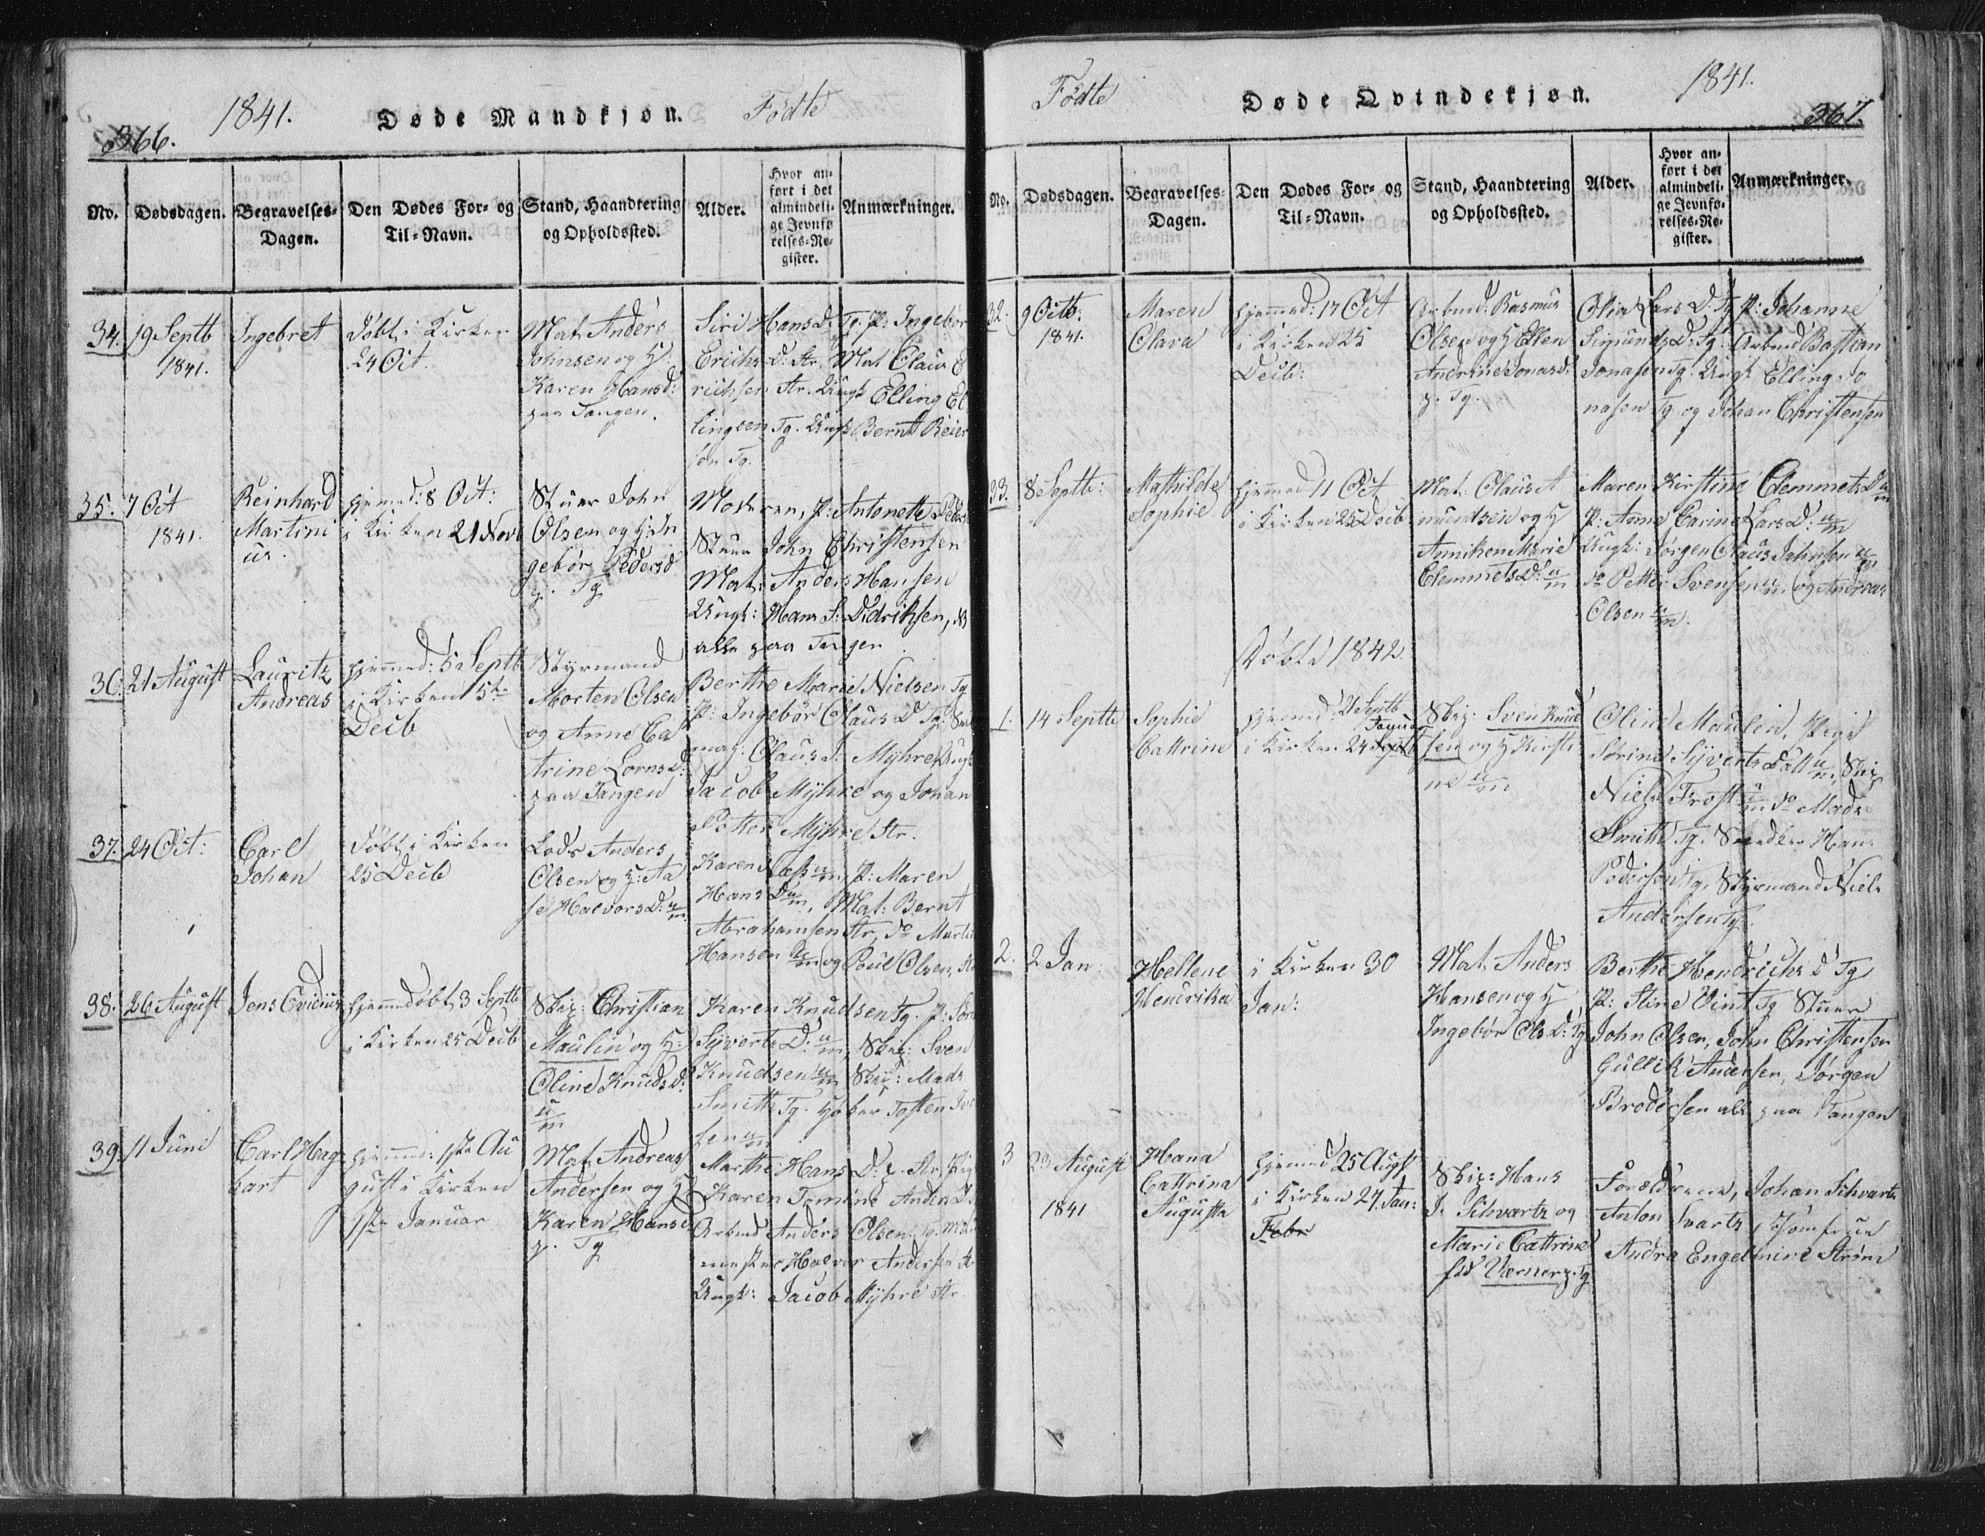 366.
1841.
Døde Mandkjøn.
Fødte
No.
Dødsdagen.
Begravelses-
Dagen.
Den Dødes For- og
Til-Navn.
Stand, Haandtering
og Opholdssted.
Alder.
Hvor an-
ført i det
almindeli-
ge Jevnfø
relses-Re-
gister.
Anmærkninger.
34.
19 Septb
1841.
Ingebret
Døbt i Kirken
24 Oct.
Mat. Anders
Johnsen og H:
Karen Hansd:
paa Tangen.
Siri Hansd: Tg. P: Ingebor
Erichsd: Str. Mat Claus E
richsen Str. Ungk Elling El
lingsen Tg. Ungk Bernt Reier
sen Tg.
35.
7 Oct
1841.
Reinhard
Martini
us.
hjemmed: 8 Oct:
i Kirken 21 Novb
Stuer John
Olsen og H: In
gebør Pedersd
p. Tg
Moderen, P: Antonette Peders
Stuer John Christensen
Mat: Anders Hansen
Ungk: Hans S: Didriksen,
alle paa Tangen.
36.
21 August
Lauritz
Andreas
hjemmed: 5 Septb
i Kirken 5te
Decb
Styrmand
Morten Olsen
og Anne Ca
trine Lornsd:
paa Tangen
Berthe Marie Nielsen Tg
P: Ingebør Claus D Tg:
mag: Claus S: Myhre Ungk
Jacob Myhre og Johan
Petter Myhre Str.
37.
24 Oct:
Carl
Johan
Døbt i Kirken
25 Decb
Lods Anders
Olsen og H: Aa
se Halvors D:
Karen Næss P: Maren
Hans D Mat: Bernt
Abrahamsen Str, do Martin
Hansen og Poul Olsen,
38.
26 August
Jens Ovidius
hjemmedøbt 3 Septb
i Kirken 25 Decb
Skip: Christian
Maulin og H:
Oline Knudsd:
Karen Knudsen Tg. P:
Syverts D: Skip: Sven
Knudsen Skip: Mads
Smith Tg. Tosten
sen
39.
11 Juni
Carl Hag
bart
hjemmed: 1ste Au
gust i Kirken
1ste Januar
Mat. Andreas
Andersen og H
Karen Hansd
p. Tg
Marthe Hans D: p. Str, Pig
Karen Tomine Anders D.
Arbmd Anders Olsen Tg.
mester Halvor Andersen
Ungk: Jacob Myhre Str.
Fødte
Døde Qvindekjøn.
1841.
367.
No.
Dødsdagen.
Begravelses-
Dagen.
Den Dødes For- og
Til-Navn.
Stand, Haandtering
og Opholdssted.
Alder.
Hvor an-
ført i det
almindeli-
ge Jevnfø-
relses-Re-
gister.
Anmærkninger.
32.
9 Octb.
1841.
Maren
Olava
hjemmed: 17 Oct
i Kirken 25
Decb:
Arbmd: Rasmus
Olsen og H Ellen
Andrine Jonasd:
p. Tg.
Olia Lars D. Tg P: Johanne
Simunds D. Tg. Arbmd Bastian
Jonasen Tg. Ungk Elling Jo
nasen Tg. og Johan Christensen
33.
8 Septb:
Mathilde
Sophie
hjemmed 11 Oct
i Kirken 25 Decb
Mat: Claus A
mundsen og H
Anniken Marie
Clemmets D:
Maren Kirstine Clemmets D
P: Anne Carine Lars D:
Ungk: Jørgen Claus Johnsen
do Petter Svensen og Andreas
Olsen
Døbte 1842.
1.
14 Septb
Sophie
Cattrine
hjemmed: 21 Septb
i Kirken 24
Skip: Sven Knud
sen og H Kirsti
ne
Oline Maulin, Pige
Sørine Syverts Datt Skip
Niels Frost do Mads
Smith Tg. Snedker Hans
Pedersen Tg, Styrmand Niels
Andersen Tg.
2.
2 Jan:
Hellene
Hendrika
i Kirken 30
Jan:
Mat. Anders
Hansen og H
Ingebør Ols D: Tg
Berthe Hendrichs D Tg
P: Stine Vint Tg Stuer
John Olsen, John Christensen
Gullik Andersen, Jørgen
Brodersen alle paa Tangen
3
23 August
1841
Hana
Cattrina
Augusta
hjemmed 25 Augst
i Kirken 27. Jan:
Febr
Skip: Hans
J. Schvartz og
Marie Cattrine
fød Værner p. Tg
Forældrene, Johan Schvartz
Anton Svartz, Jomfrue
Andra Engelmine Strøm